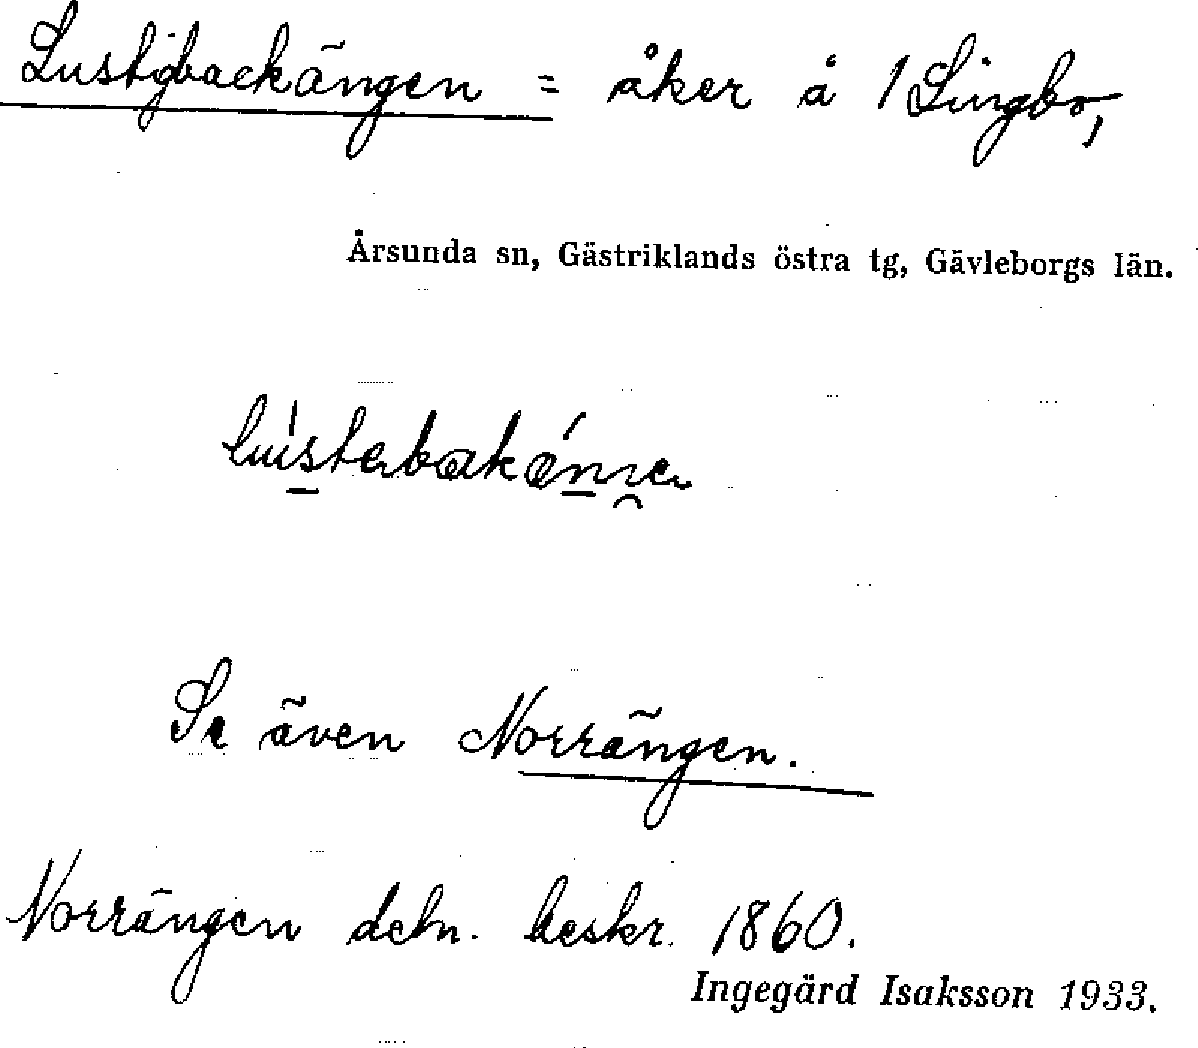 Lustigbackängen = åker å 1 Lingbo,
Årsunda sn, Gästriklands östra tg, Gävleborgs län.
Se även Norrängen.
Norrängen debn. beskr. 1860.
Ingegärd Isaksson 1933.